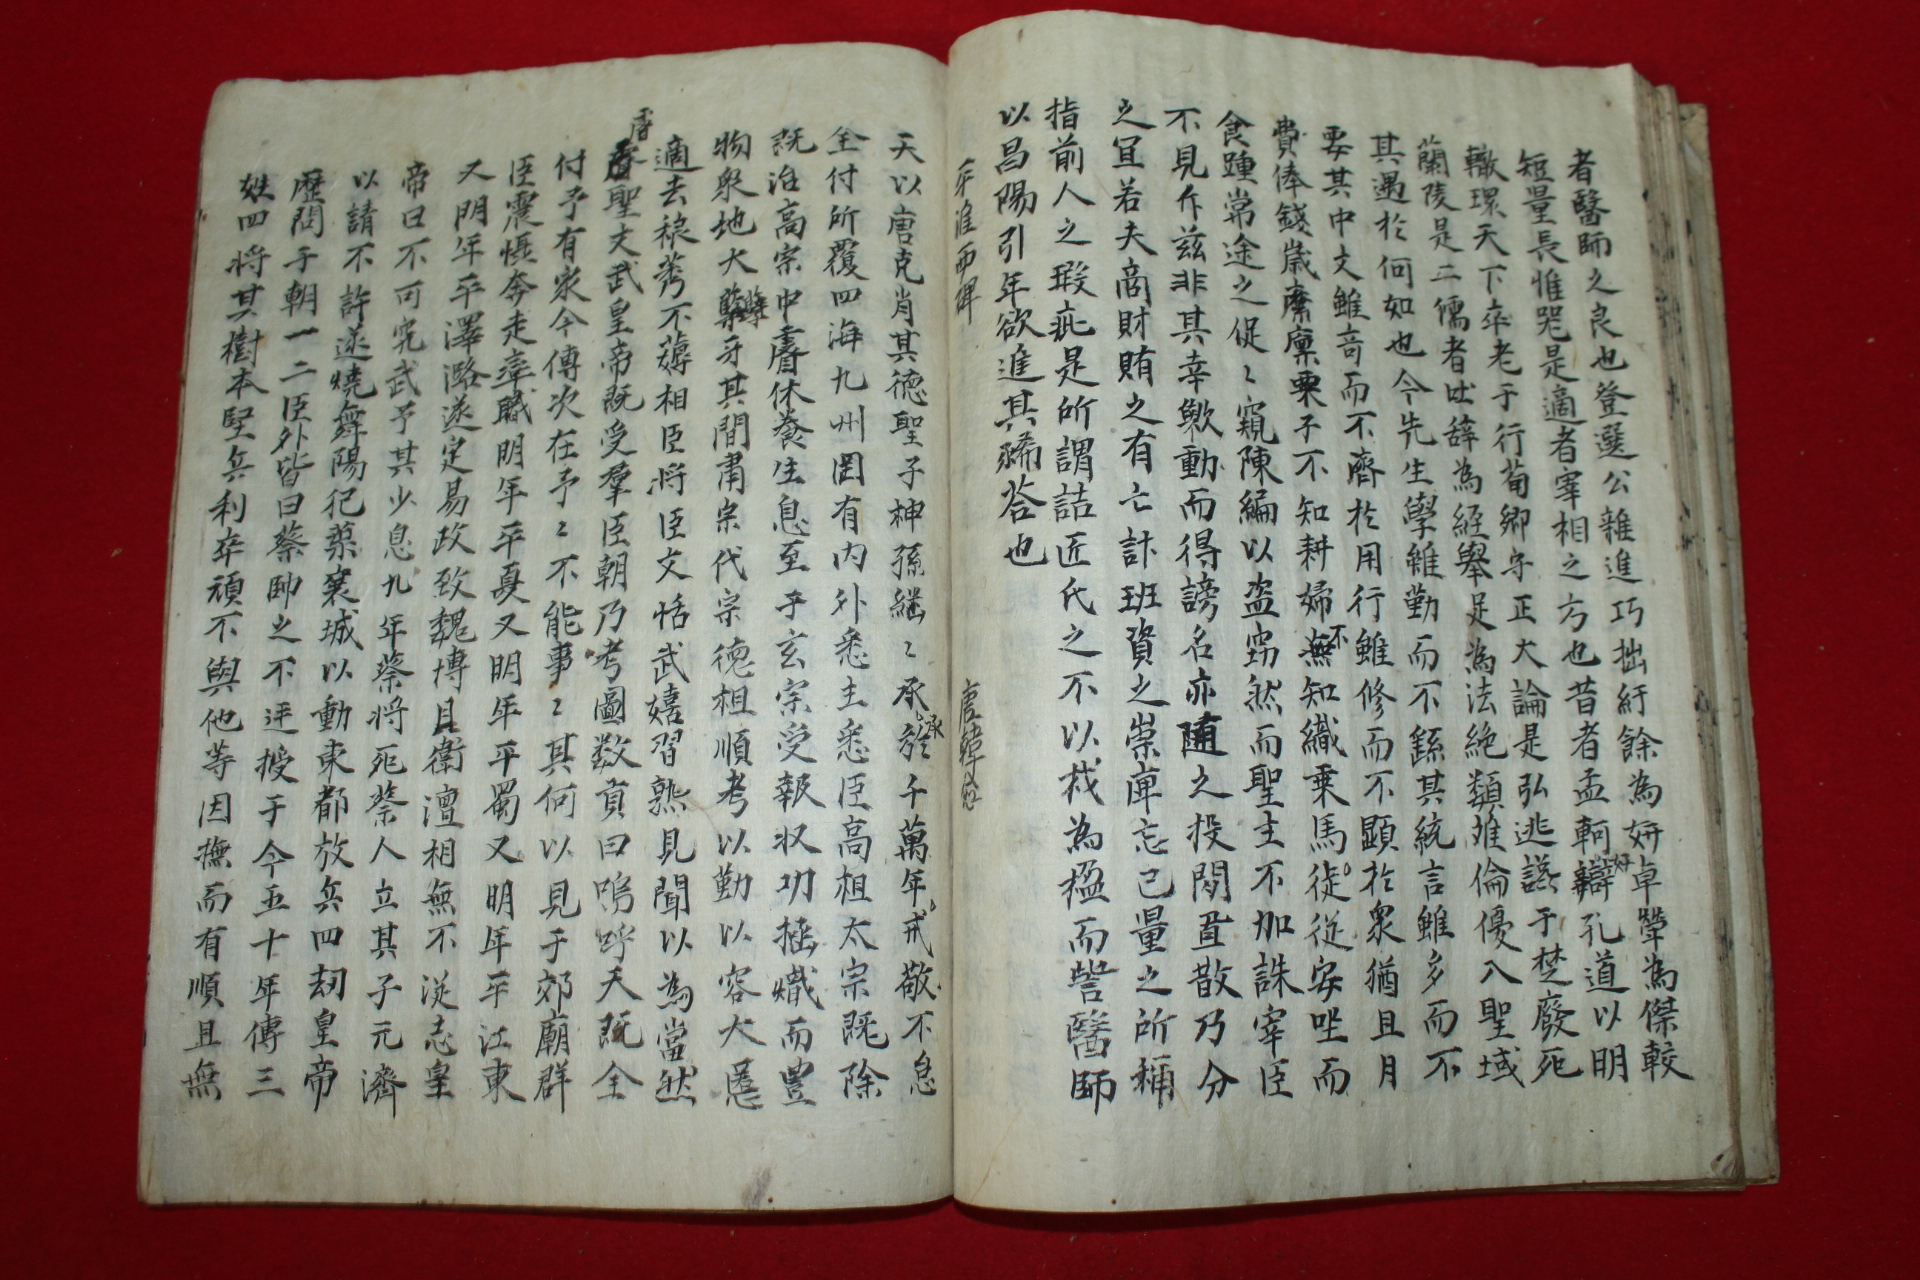 者醫師之良也登選公雜進巧拙紆餘為姸卓犖為傑較
短量長惟器是適者宰相之方也昔者孟軻好辯孔道以明
轍環天下卒老于行荀卿守正大論是弘逃讒于楚廢死
蘭陵是二儒者吐辞為經舉足為法絶類難倫優入聖域
其遇於何如也今先生學雖勤而不繇其統言雖多而不
要其中文雖竒而不濟於用行雖修而不顯於衆猶且月
費俸錢歲縻廩粟子不知耕婦不知織乗馬徒從安坐而
食踵常途之促〻窺陳編以盗竊然而聖主不加誅宰臣
不見斥兹非其幸歟動而得謗名亦随之投閑置散乃分
之宜若夫商財賄之有亡計班資之崇庳忘己量之所稱
指前人之瑕疵是所謂詰匠氏之不以杙為楹而訾醫師
以昌陽引年欲進其豨苓也
平淮西碑 唐韓愈
天以唐克肖其徳聖子神孫継〻承承於千萬年敬戒不怠
全付所覆四海九州罔有内外悉主悉臣高祖太宗既除
既治高宗中睿休養生息至于玄宗受報収功極熾而豊
物衆地大孽牙其間肅宗代宗徳祖順考以勤以容大慝
適去稂莠不薅相臣将臣文恬武嬉習熟見聞以為當然
睿聖文武皇帝既受羣臣朝乃考圖数貢曰嗚呼天既全
付予有家今傳次在予〻不能事〻其何以見于郊廟群
臣震慑奔走率職明年平夏又明年平蜀又明年平江東
又明年平澤潞遂定易政致魏博貝衛澶相無不從志皇
帝曰不可究武予其少息九年蔡将死蔡人立其子元濟
以請不許遂焼舞陽犯葉襄城以動東都放兵四刼皇帝
歴問于朝一二臣外皆曰蔡帥之不迋授于今五十年傳三
姓四将其樹本堅兵利卒頑不與他等因撫而有順且無